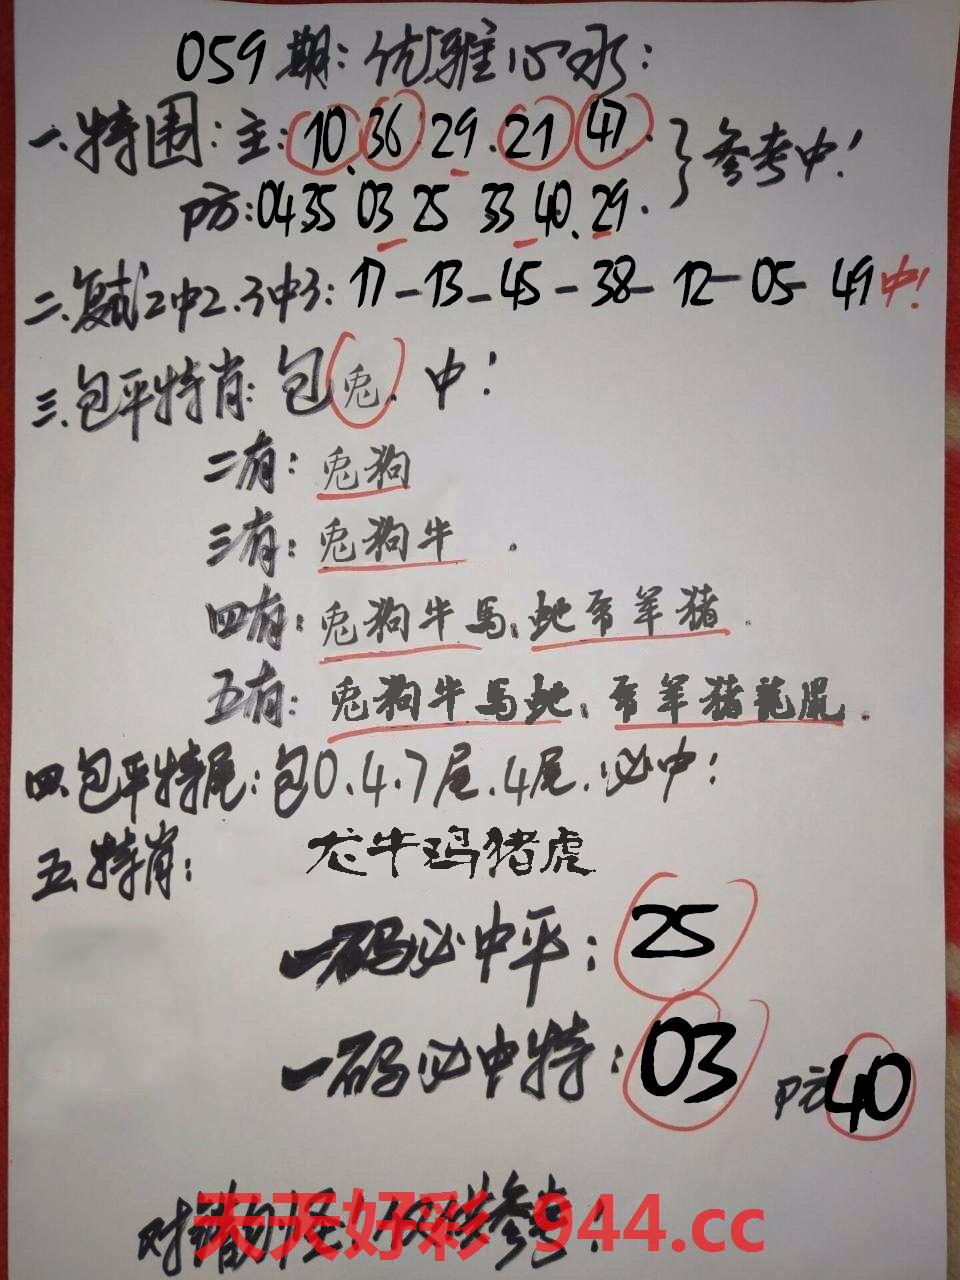 059期:优雅心水:
一.特围:主:10.36 29.21 47.
防:04 35 03 25 33 40.29.
}参考中!
二.复试2中2.3中3:17-13-45-38-12-05-49中!
三.包平特肖:包兔.中!
二有:兔狗
三有:兔狗牛.
四有:兔狗牛马.蛇 羊猪.
五有:兔狗牛马蛇. 羊猪龍鼠.
四.包平特尾:包0.4.7尾.4尾.必中!
五.特肖:龙牛鸡猪虎
一码必中平:25
一码必中特:03 防40
对错勿怪!仅供参考!
天天好彩 944.cc